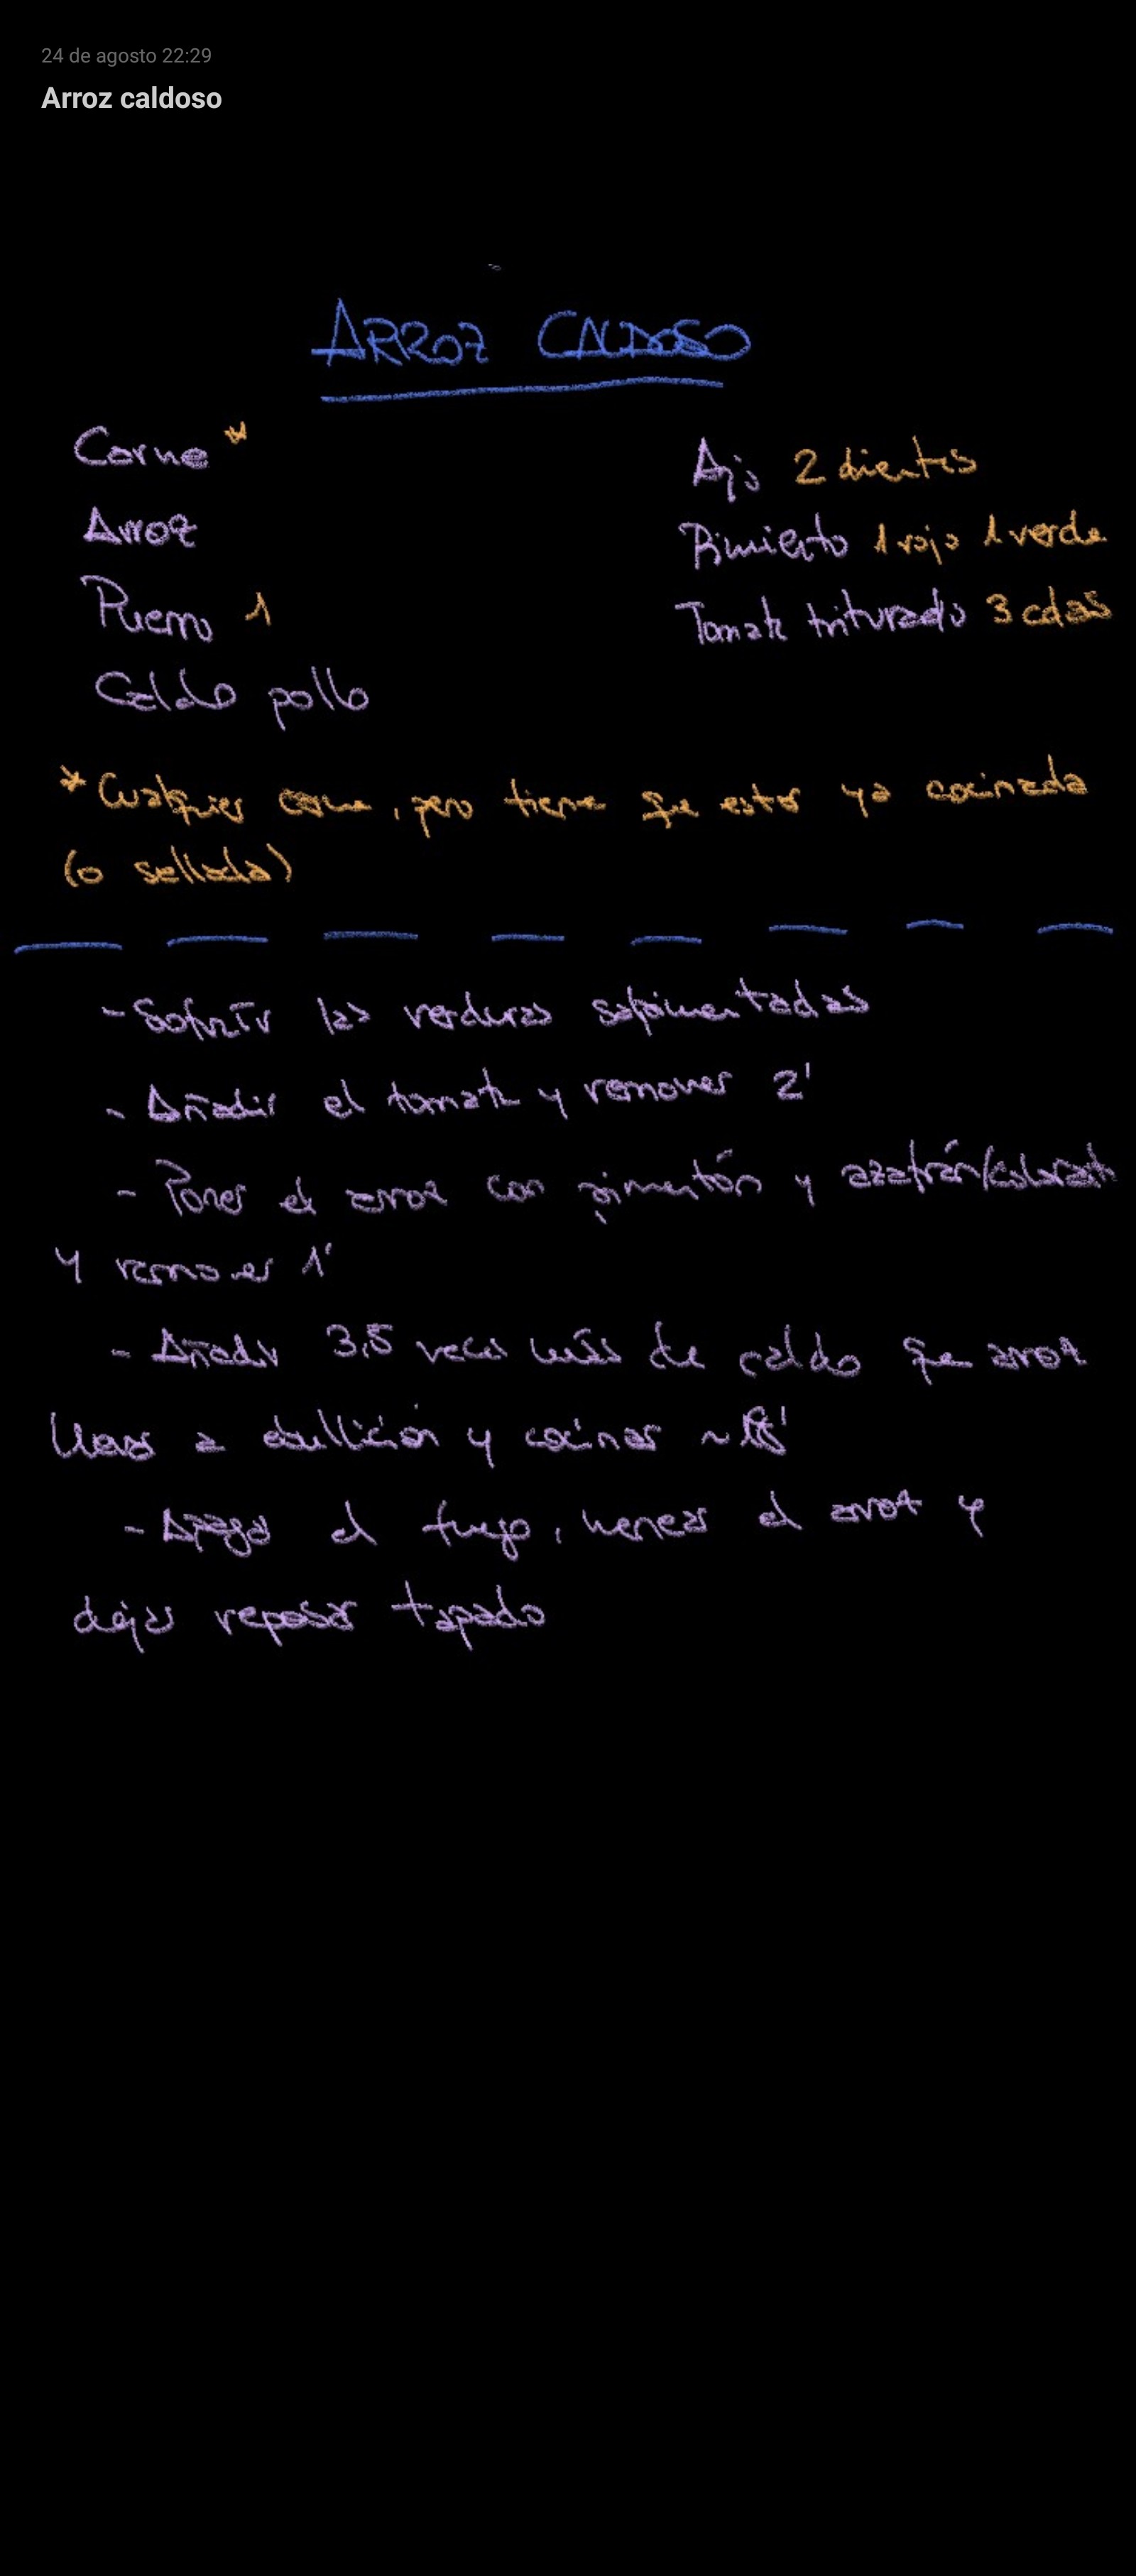 24 de agosto 22:29
Arroz caldoso
ARROZ CALDOSO
Carne *
Arroz
Puerro 1
Caldo pollo
Ajo 2 dientes
Pimiento 1 rojo 1 verde
Tomate triturado 3 cdas
* Cualquier carne, pero tiene que estar ya cocinada
(o sellada)
- Sofreír las verduras salpimentadas
- Añadir el tomate y remover 2'
- Poner el arroz con pimentón y azafrán/colorante
y remover 1'
- Añadir 3,5 veces más de caldo que arroz
llevar a ebullición y cocinar ~
- Apagar el fuego, menear el arroz y
dejar reposar tapado